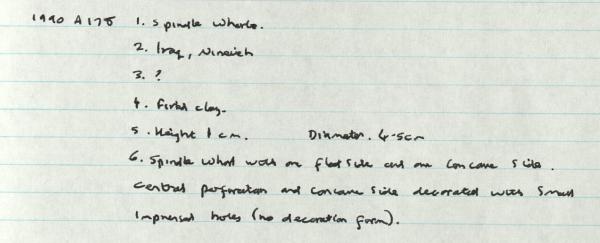 1990 A175 1. Spindle whorls.
2. Iraq, Nineveh
3. ?
4. Fired clay.
5. Height 1 cm. Diameter. 4-5cm
6. Spindle whorl with one flat side and one concave side.
Central perforation and concave side decorated with small
impressed holes (no decoration form).